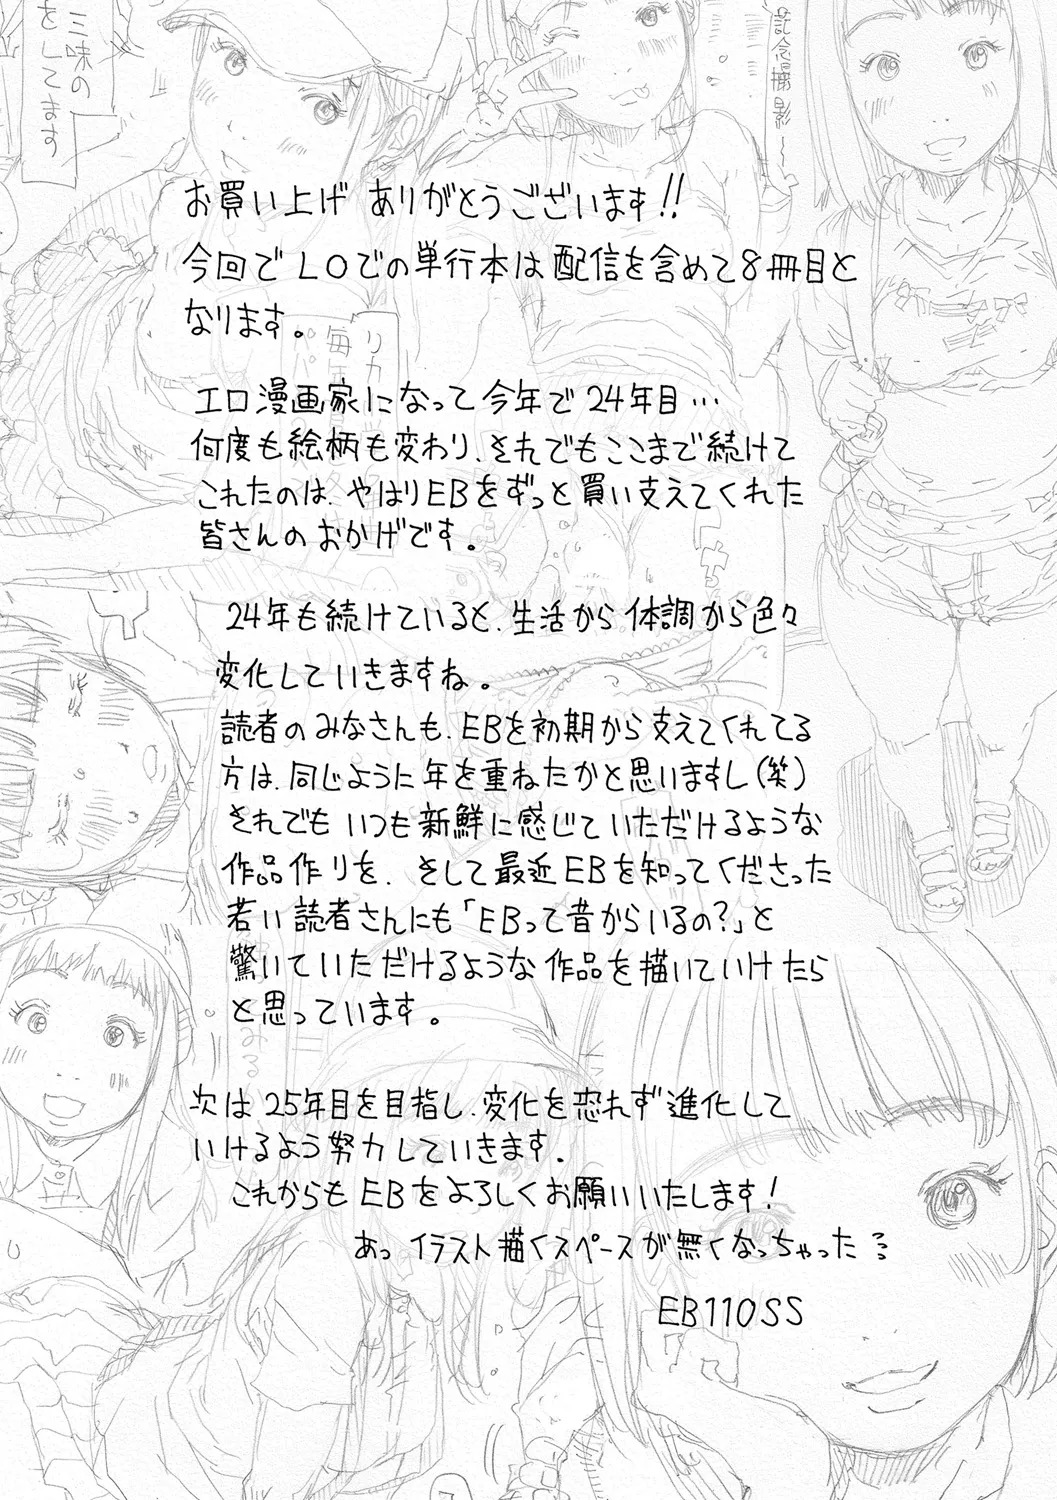 三味の
をしてます
記念撮影～
お買い上げ ありがとうございます!!
今回でLOでの単行本は配信を含めて8冊目と
なります。
エロ漫画家になって今年で24年目…
何度も絵柄も変わり、それでもここまで続けて
これたのは、やはりEBをずっと買い支えてくれた
皆さんのおかげです。
24年も続けていると、生活から体調から色々
変化していきますね。
読者のみなさんも、EBを初期から支えてくれてる
方は、同じように年を重ねたかと思いますし(笑)
それでもいつも新鮮に感じていただけるような
作品作りを、そして最近EBを知ってくださった
若い読者さんにも「EBって昔からいるの?」と
驚いていただけるような作品を描いていけたら
と思っています。
次は25年目を目指し、変化を恐れず進化して
いけるよう努力していきます。
これからもEBをよろしくお願いいたします!
あっイラスト描くスペースが無くなっちゃった
EB110SS